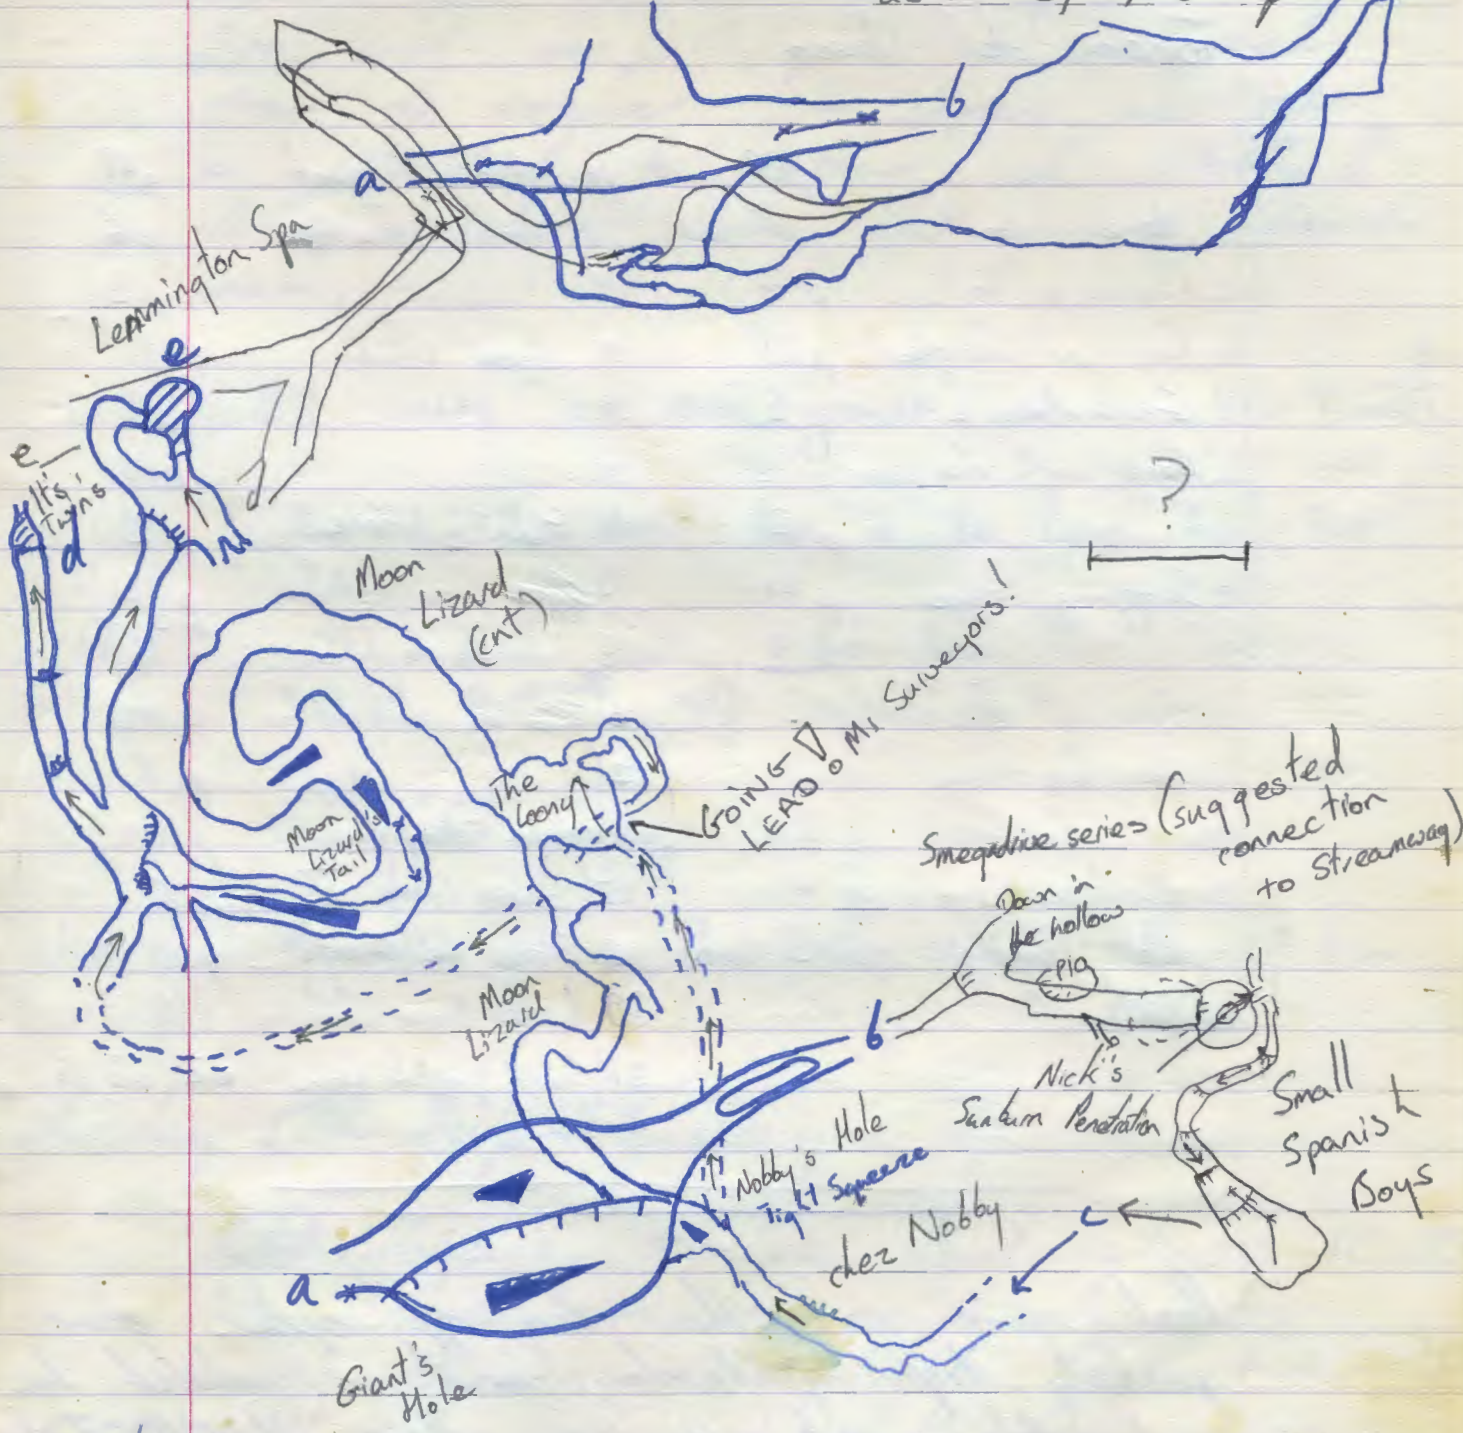 b
a
Lemmington Spa
e
e
It's
Twins
d
?
Moon
Lizard
(cnt)
GOING
LEAD o MI Surveyors!
The
Loony
Moon
Lizard's
Tail
Smegadrive series (suggested
connection
to Streamway)
Down in
the hollow
PIG
Moon
Lizard
b
Nick's
Sunburn Penetration
Small
Spanish
Boys
Nobby's Hole
Tight Squeeze
chez Nobby
c
a
Giant's
Hole